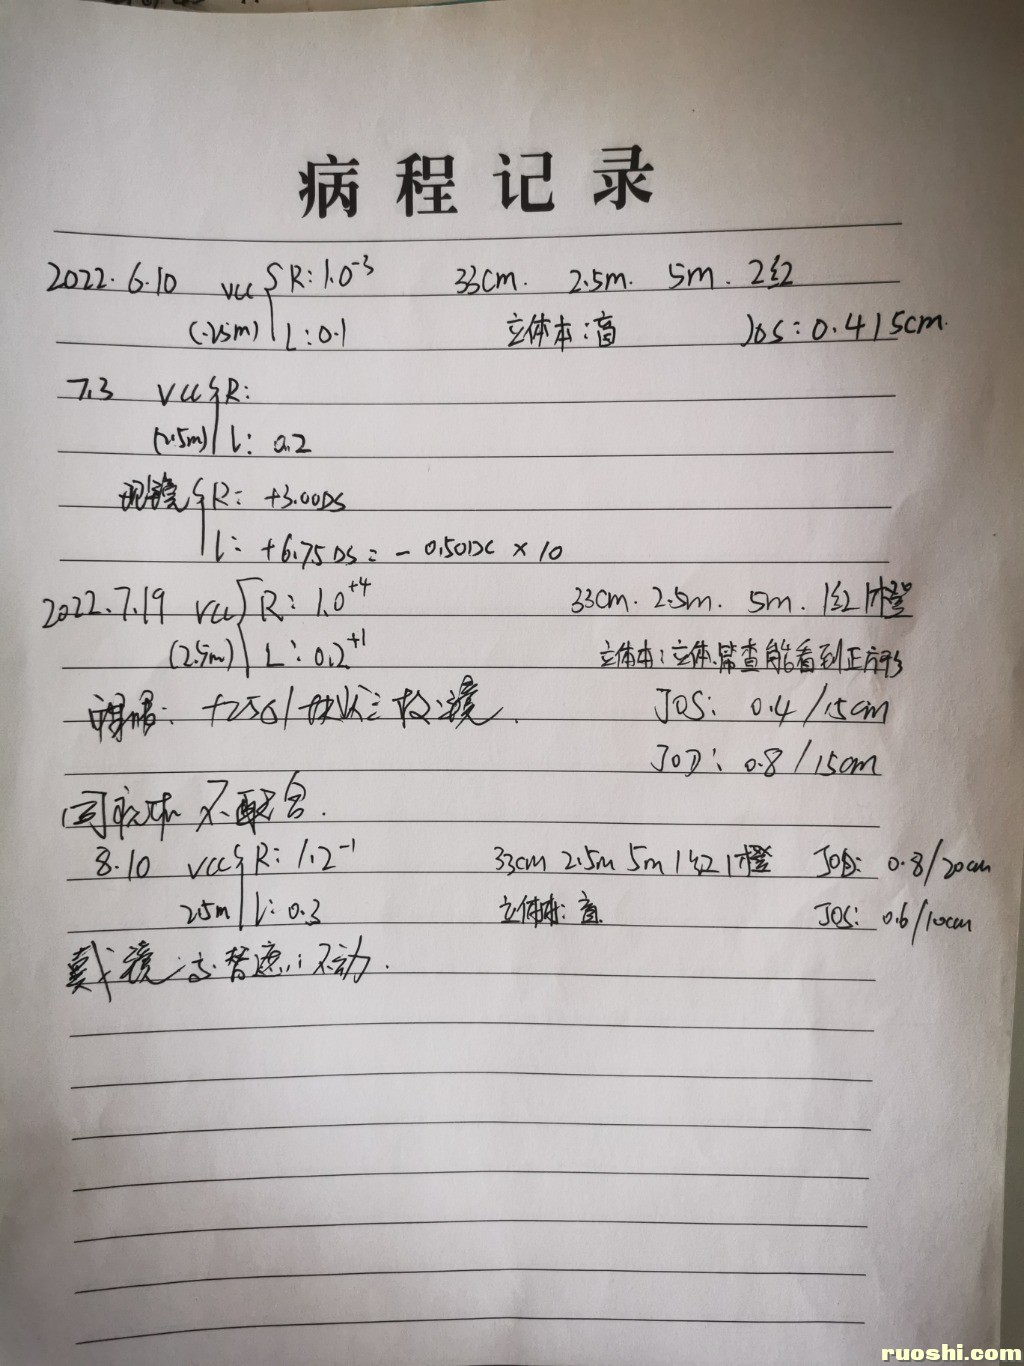 病程记录
2022.6.10 vcc R:1.0⁻³ 33cm. 2.5m. 5m. 2红
(2.5m) L:0.1 立体本:盲 JOS:0.4/5cm.
7.3 vcc R:
(2.5m) L: 0.2
现镜 R: +3.00DS
L: +6.75DS = -0.50DC × 10
2022.7.19 vcc R:1.0⁺⁴ 33cm. 2.5m. 5m. 1红1橙
(2.5m) L:0.2⁺¹ 立体本:立体筛查能看到正方形
JOS: 0.4/15cm
JOD: 0.8/15cm
同视机 不配合.
8.10 vcc R:1.2⁻¹ 33cm 2.5m 5m 1红1橙 JOD: 0.8/20cm
2.5m L:0.3 立体本:盲. JOS: 0.6/10cm
戴镜 交替遮:不动.
ruoshi.com